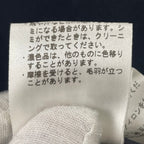 ミになる場合があります。シ
ミができたときは、クリーニ
ング店で取ってください。
・濃色品は、他のものに色移り
することがあります。
・摩擦を受けると、毛羽が立つ
ことがあります。